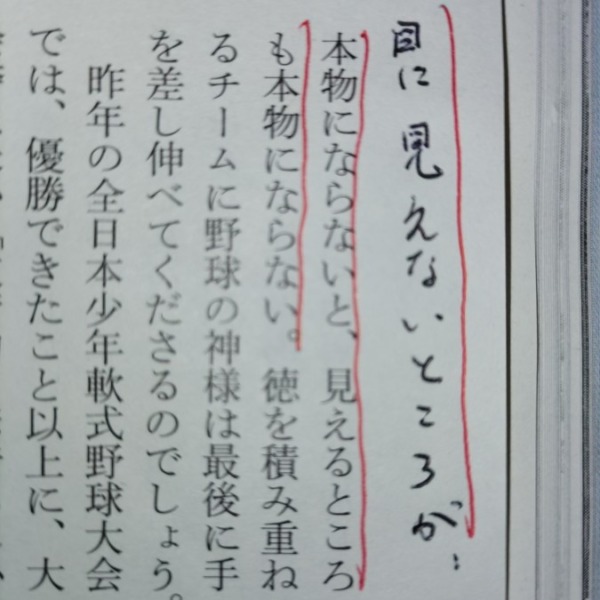 目に見えないところが:
本物にならないと、見えるところ
も本物にならない。徳を積み重ね
るチームに野球の神様は最後に手
を差し伸べてくださるのでしょう。
昨年の全日本少年軟式野球大会
では、優勝できたこと以上に、大